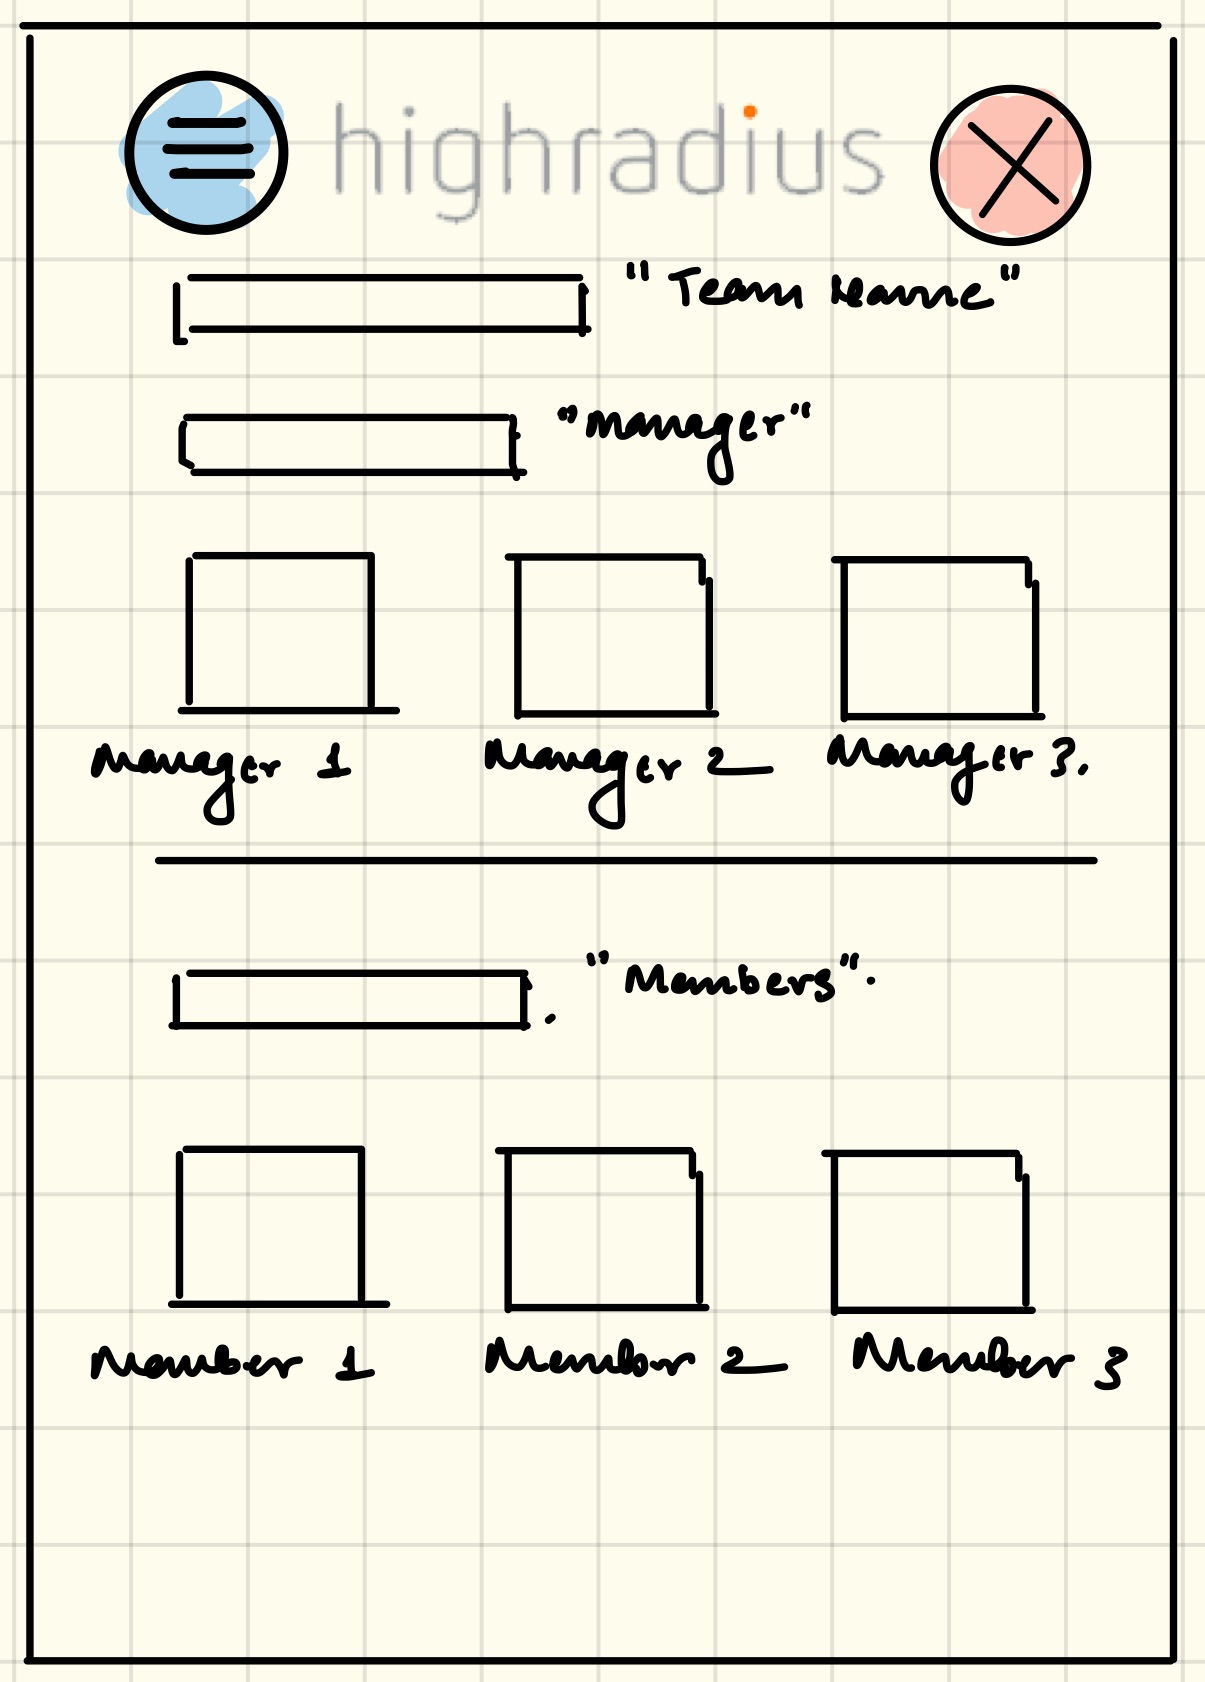 highradius
"Team Name"
"Manager"
Manager 1 Manager 2 Manager 3.
"Members".
Member 1 Member 2 Member 3